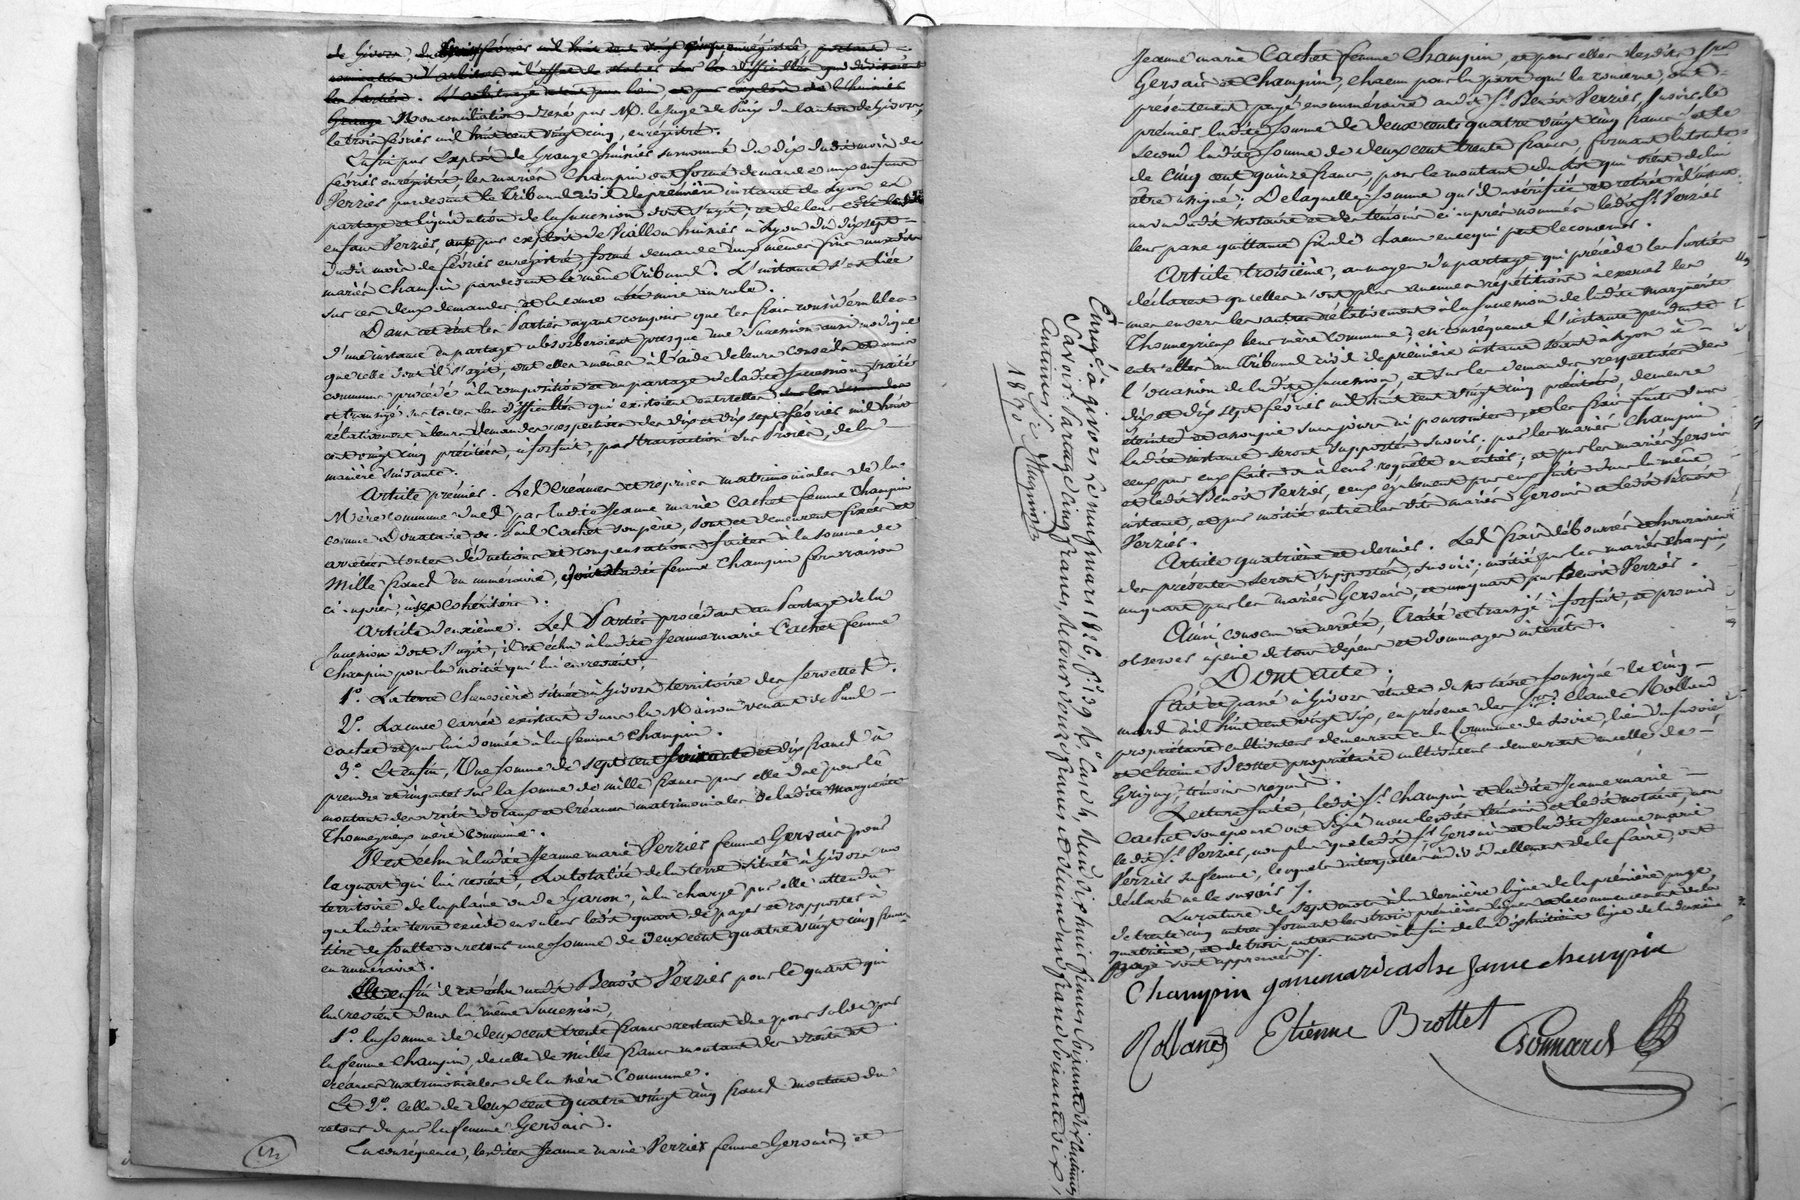 de Givors, du
la Partie.
Grange Nonconciliation dressé par M. le Juge de Paix du canton de Givors,
le trois février mil huit cent vingt cinq, enregistré.
Enfin par Exploit de Grange huissier surnommé du dix dudit mois de
février enrégistré les mariés Champin ont formé demande aux enfans
Verzier pardevant le Tribunal civil de première instance de Lyon en
partage et liquidation de la succession dont s'agit, et de leur côté lesdits
enfans Verzier, par exploit de Viallon huissier à Lyon du dix sept
dudit mois de février enregistré, formé demande aux mêmes fins auxdits
mariés Champin pardevant le même Tribunal. L'instance s'est liée
sur ces deux demandes et la cause a été mise au role.
Dans cet état les Parties ayant compris que les frais considérables
d'une instance en partage absorberoient presque une succession aussi modique
que celle dont il s'agit, ont elles mêmes à l'aide de leurs conseils et amis
communs procédé à la composition et au partage de ladite succession, traité
et transigé sur toutes les difficultés qui existoient entr'elles
relativement à leurs demandes respectives des dix et dix sept février mil huit
cent vingt cinq précitées, à forfait, par transaction sur Procès, de la
manière suivante.
Article premier. Les Créances et reprises matrimoniales de la
Mère commune dues par ladite Jeanne marie Cachet femme Champin
comme Donataire de Paul Cachet son père, sont et demeurent fixées et
arretées toutes déductions et compensations faites à la somme de
Mille francs en numéraire, dont ladite femme Champin fera raison
ci-après, à ses cohéritiers.
Article deuxième. Les Parties procédant au Partage de la
succession dont s'agit, il est échu à ladite Jeanne marie Cachet femme
Champin pour la moitié qui lui en revient,
1°. La terre Chenevière située à Givors territoire des Servettes.
2°. La cuve carrée existant dans la Maison venant de Paul
Cachet et par lui donnée à la femme Champin.
3°. Et enfin, Une somme de sept cent soixante et dix francs à
prendre et imputer sur la somme de mille francs par elle due pour le
montant des droits dotaux et Créances matrimoniales de ladite Marguerite
Thomeyrieux mère commune.
Il est échu à ladite Jeanne marie Verzier femme Gervais pour
le quart qui lui revient, La totalité de la terre située à Givors au
territoire de la plaine ou de Garon, à la charge par elle attendu
que ladite terre excède en valeur ledit quart de payer et rapporter à
titre de soulte ou retour une somme de deux cent quatre vingt cinq francs
en numéraire.
Et enfin il est échu audit Benoit Verzier pour le quart qui
lui revient dans la même succession,
1°. la somme de deux cent trente francs restant due pour solde par
la femme Champin, de celle de mille francs montant des droits et
créances matrimoniales de la mère Commune.
Et 2°. celle de deux cent quatre vingt cinq francs montant du
retour du par la femme Gervais.
En conséquence, lesdites Jeanne marie Verzier femme Gervais, et
Jeanne marie Cachet femme Champin, et pour elles lesdits Srs
Gervais et Champin, chacun pour la part qui le concerne, ont
présentement payé en numéraire audit Sr. Benoit Verzier, savoir, le
premier ladite somme de deux cents quatre vingt cinq francs et le
second ladite somme de deux cent trente francs, formant la totale
de cinq cent quinze francs, pour le montant du lot qui vient de lui
être assigné; De laquelle somme qu'il a vérifiée et retirée à l'instant
au vu dudit Notaire et des témoins ci-après nommés ledit Sr. Verzier
leur passe quittance finale chacun en ce qui peut le concerner.
Article troisième, au moyen du partage qui précède les Parties
déclarent qu'elles n'ont plus aucunes répétitions à exercer les
unes envers les autres relativement à la succession de ladite Marguerite
Thomeyrieux leur mère commune; en conséquence l'instance pendante
entr'elles au Tribunal civil de première instance séant à Lyon à
l'occasion de ladite succession, et sur les demandes respectives des
dix et dix sept février mil huit cent vingt cinq précitées, demeure
éteinte et assoupie sans pouvoir y poursuivre, et les frais faits dans
ladite instance seront supportés savoir: par les mariés Champin
ceux par eux faits ou à leur requête en entier; et par les mariés Gervais
et ledit Benoit Verzier, ceux également par eux faits dans la même
instance, et par moitié entre lesdits mariés Gervais et ledit Benoit
Verzier.
Article quatrième et dernier. Les frais déboursés et honoraires
des présentes seront supportés, savoir; moitié par les mariés Champin,
un quart par les mariés Gervais, et un quart par Benoit Verzier.
Ainsi convenu et arreté, Traité et transigé à forfait, et promis
observer à peine de tous dépens et dommages intérêts.
Dont acte.
Fait et passé à Givors étude du Notaire soussigné le cinq
mars mil huit cent vingt six, en présence des Srs. Claude Rolland
propriétaire cultivateur demeurant en la Commune de Loire, lieu de
et Etienne Brottet propriétaire cultivateur demeurant en celle de
Grigny, témoins requis.
Lecture faite, ledit Sr. Champin et ladite Jeanne marie
Cachet son épouse ont signé avec lesdits témoins et ledit notaire, non
ledit Sr. Verzier, non plus que ledit Sr. Gervais et ladite Jeanne marie
Verzier sa femme, lesquels interpellés individuellement de le faire, ont
déclaré ne le savoir /.
La rature de sept mots à la dernière ligne de la première page,
de trente cinq autres formant les trois premières lignes et le commencement de la
quatrième, et de trois autres mots à la fin de la dixhuitième ligne de la deuxième
page sont approuvées /.
Champin jannemaricache fame champin
Rolland Etienne Brottet Bonnard
Enreg. à givors le neuf mars 1826. f° 139 R° Cases 4, Reçu dix huit francs soixante dix centimes
Savoir: Partage cinq francs, Retour douze francs et dixme un franc soixante dix
Centimes
1870